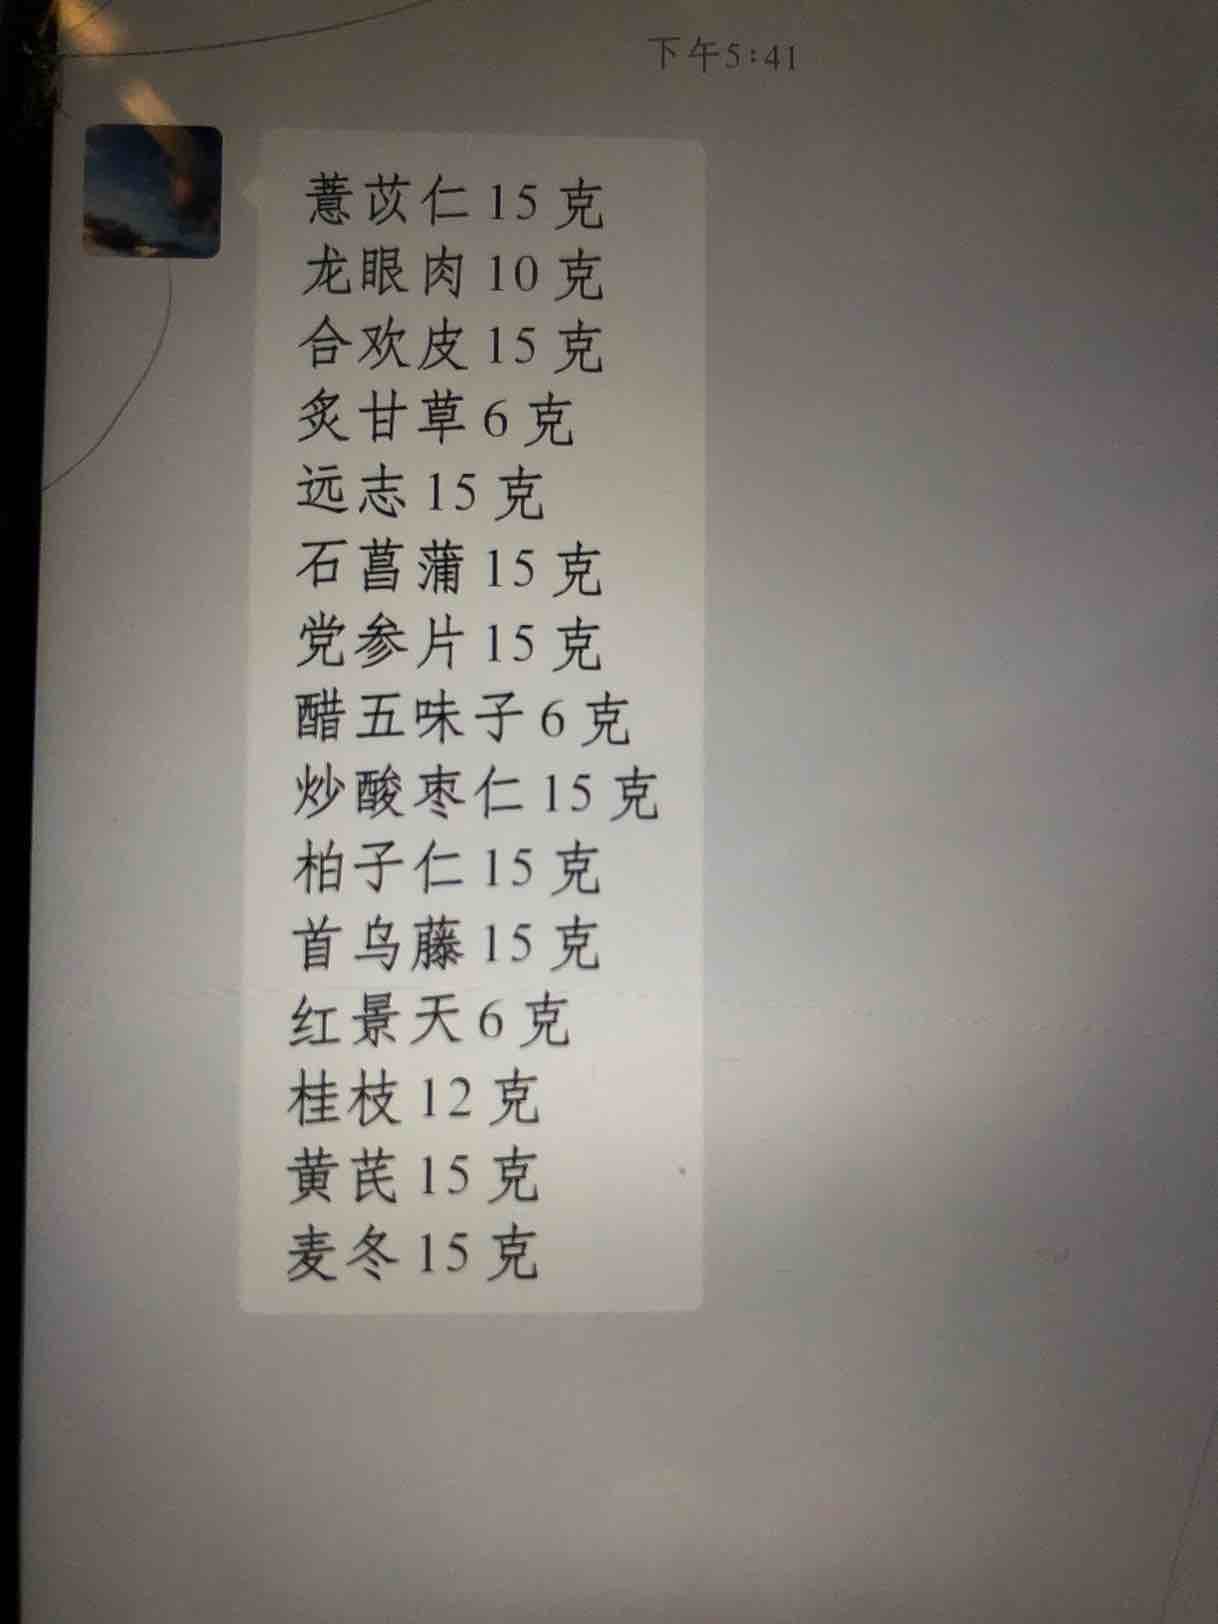 下午5:41
薏苡仁 15 克
龙眼肉 10 克
合欢皮 15 克
炙甘草 6 克
远志 15 克
石菖蒲 15 克
党参片 15 克
醋五味子 6 克
炒酸枣仁 15 克
柏子仁 15 克
首乌藤 15 克
红景天 6 克
桂枝 12 克
黄芪 15 克
麦冬 15 克